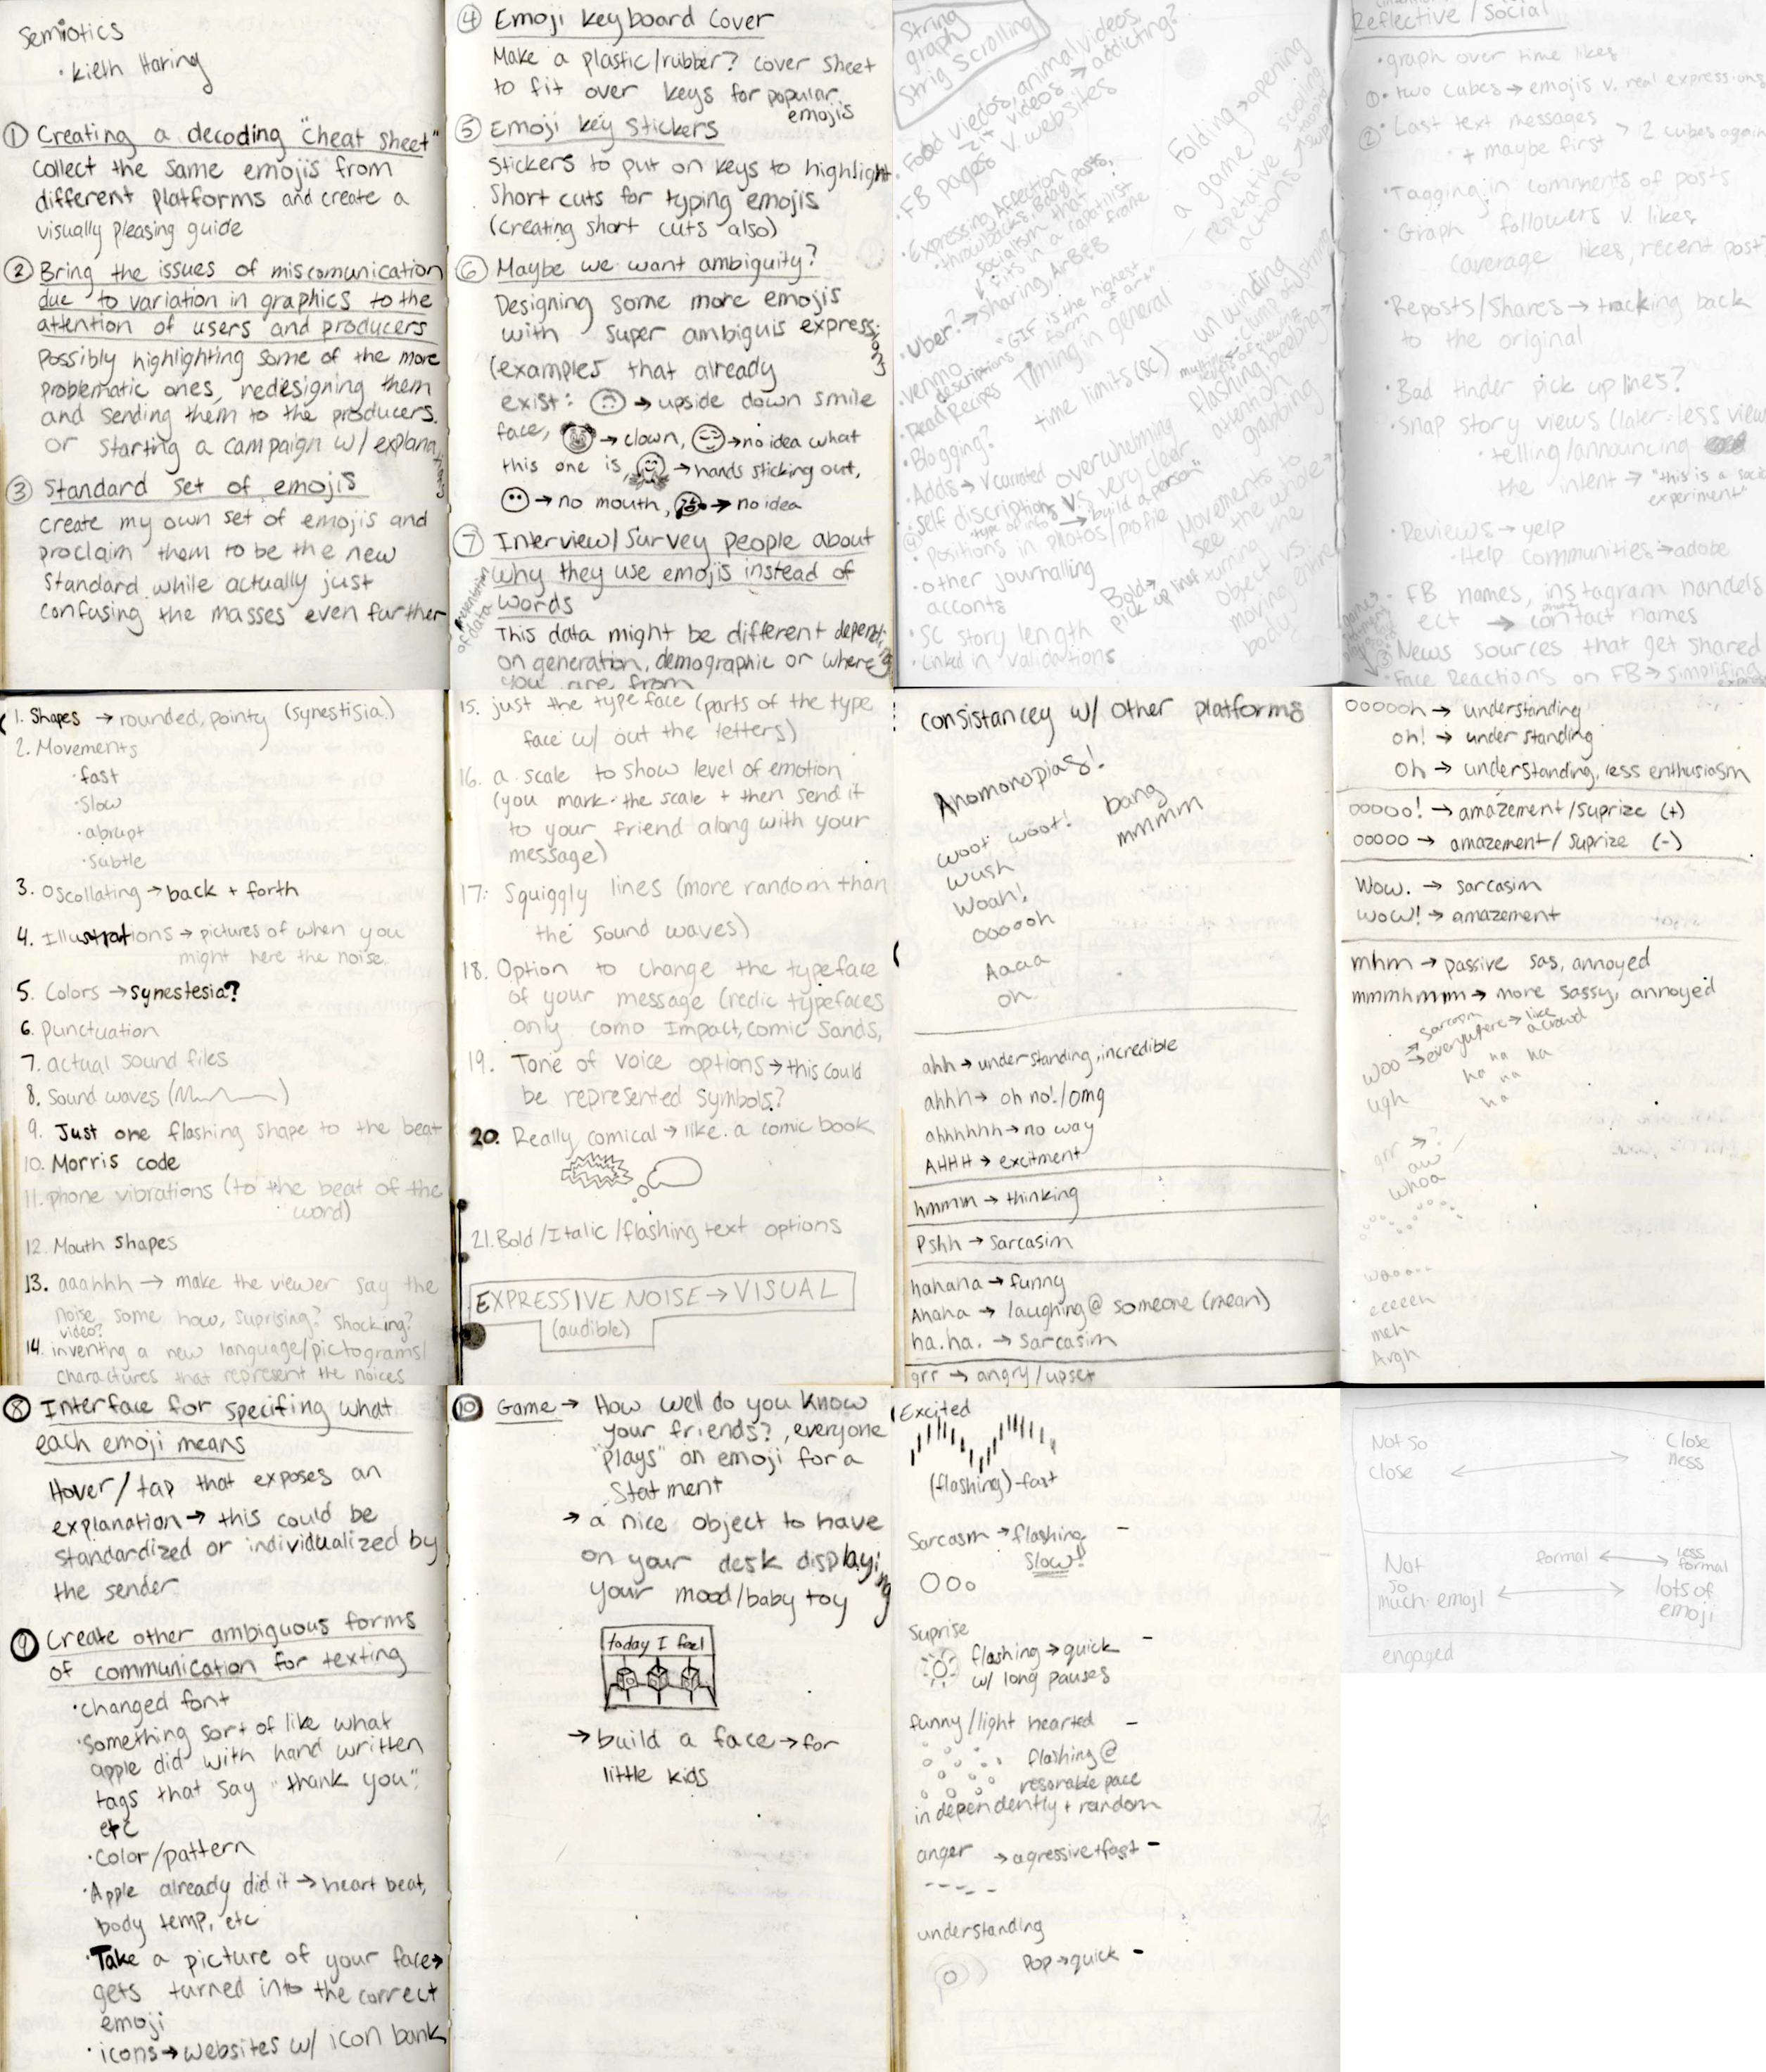 Semiotics
· Kieth Haring
① Creating a decoding "cheat sheet"
collect the same emojis from
different platforms and create a
visually pleasing guide
② Bring the issues of miscomunication
due to variation in graphics to the
attention of users and producers
possibly highlighting some of the more
problematic ones, redesigning them
and sending them to the producers.
or starting a campaign w/ explanations
③ Standard set of emojis
create my own set of emojis and
proclaim them to be the new
standard while actually just
confusing the masses even further
④ Emoji keyboard cover
Make a plastic/rubber? cover sheet
to fit over keys for popular
emojis
⑤ Emoji key stickers
stickers to put on keys to highlight
short cuts for typing emojis
(creating short cuts also)
⑥ Maybe we want ambiguity?
Designing some more emojis
with super ambiguis expressions
(examples that already
exist: → upside down smile
face, → clown, → no idea what
this one is, → hands sticking out,
→ no mouth, → no idea
⑦ Interview/survey people about
why they use emojis instead of
words
presentation
of data
This data might be different depending
on generation, demographic or where
you are from
String
graph
Strig Scrolling
· Food viedos, animal videos,
zit videos → addicting?
· FB pages v. websites
· Expressing Affection
· throwbacks, Bday posts,
socialism that
fits in a capatilist
frame
· Uber? → sharing, AirB&B
"GIF is the highest
form of art"
· venmo
descriptions
Timing in general
· Read Recips
time limits (sc)
· Blogging?
· Adds → curated
overwhelming
vs. very clear
· self discriptions
→ "build a person"
· Positions in photos/profile
· other journalling
acconts
Bold →
pick up lines
· SC story length
· Linked in validations
Folding → opening
a game
repetative
actions
unwinding
flashing, beeping →
attention
grabbing
Movements to
see the whole →
turning me
object vs.
moving entire
body
Reflective/Social
· graph over time likes
① · two cubes → emojis v. real expressions
② · Last text messages
· + maybe first > 2 cubes again
· Tagging in comments of posts
· Graph followers v. likes
(average likes, recent post
· Reposts/Shares → tracking back
to the original
· Bad tinder pick up lines?
· Snap story views (later = less view
· telling/announcing
the intent → "this is a social
experiment"
· Reviews → yelp
· Help communities → adobe
· FB names, instagram nandels
ect → contact names
③ · News sources that get shared
· Face Reactions on FB → simplifing
1. Shapes → rounded, pointy (synestisia)
2. Movements
· fast
· slow
· abrupt
· subtle
3. Oscollating → back + forth
4. Illustrations → pictures of when you
might here the noise.
5. Colors → synestesia?
6. punctuation
7. actual sound files
8. Sound waves ( )
9. Just one flashing shape to the beat
10. Morris code
11. phone vibrations (to the beat of the
word)
12. Mouth shapes
13. aaahhh → make the viewer say the
noise some how, suprising? shocking?
video?
14. inventing a new language/pictograms/
charactures that represent the noices
15. just the type face (parts of the type
face w/ out the letters)
16. a scale to show level of emotion
(you mark the scale + then send it
to your friend along with your
message)
17. Squiggly lines (more random than
the sound waves)
18. Option to change the typeface
of your message (redic typefaces
only como Impact, Comic Sands,
19. Tone of voice options → this could
be represented symbols?
20. Really comical → like a comic book
21. Bold/Italic/flashing text options
EXPRESSIVE NOISE → VISUAL
(audible)
consistancey w/ other platforms
Anomonopias!
woot woot! bang
wush mmmm
Woah!
ooooh
Aaaa
oh
ahh → understanding, incredible
ahhh → oh no!/omg
ahhhhhh → no way
AHHH → excitment
hmmm → thinking
Pshh → sarcasim
hahaha → funny
Ahaha → laughing @ someone (mean)
ha.ha. → sarcasim
grr → angry/upset
oooooh → understanding
oh! → under standing
Oh → understanding, less enthusiasm
ooooo! → amazement/suprize (+)
ooooo → amazement/suprize (-)
Wow. → sarcasim
wow! → amazement
mhm → passive sas, annoyed
mmmhmmm → more sassy, annoyed
Woo → sarcasm
→ everywhere → like
a crowd
ugh
ha ha
ha ha
ha
grr → ?
aw
whoa
waoooo
eeeeeh
meh
Argh
⑧ Interface for specifing what
each emoji means
Hover/tap that exposes an
explanation → this could be
standardized or individualized by
the sender
⑨ Create other ambiguous forms
of communication for texting
· changed font
· something sort of like what
apple did with hand written
tags that say "thank you",
etc
· color/pattern
· Apple already did it → heart beat,
body temp, etc
· Take a picture of your face →
gets turned into the correct
emoji
· icons → websites w/ icon bank
⑩ Game → How well do you know
your friends?, everyone
"plays" an emoji for a
statment
→ a nice object to have
on your desk displaying
your mood/baby toy
today I feel
→ build a face → for
little kids
Excited
(flashing) - fast
Sarcasm → flashing -
slow!
Suprise
flashing → quick -
w/ long pauses
funny/light hearted -
flashing @
resorable pace
independently + random
anger → agressive + fast -
understanding
Pop → quick -
Not so
close
Close
ness
formal ↔ less
formal
Not
so
much emoji ↔ lots of
emoji
engaged